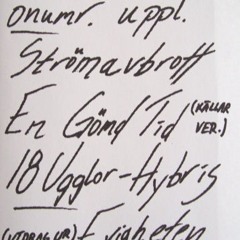 onumr. uppl.
Strömavbrott
En Gömd Tid (KÄLLAR VER.)
18 Ugglor-Hybris
(UTDRAG UR) Evigheten